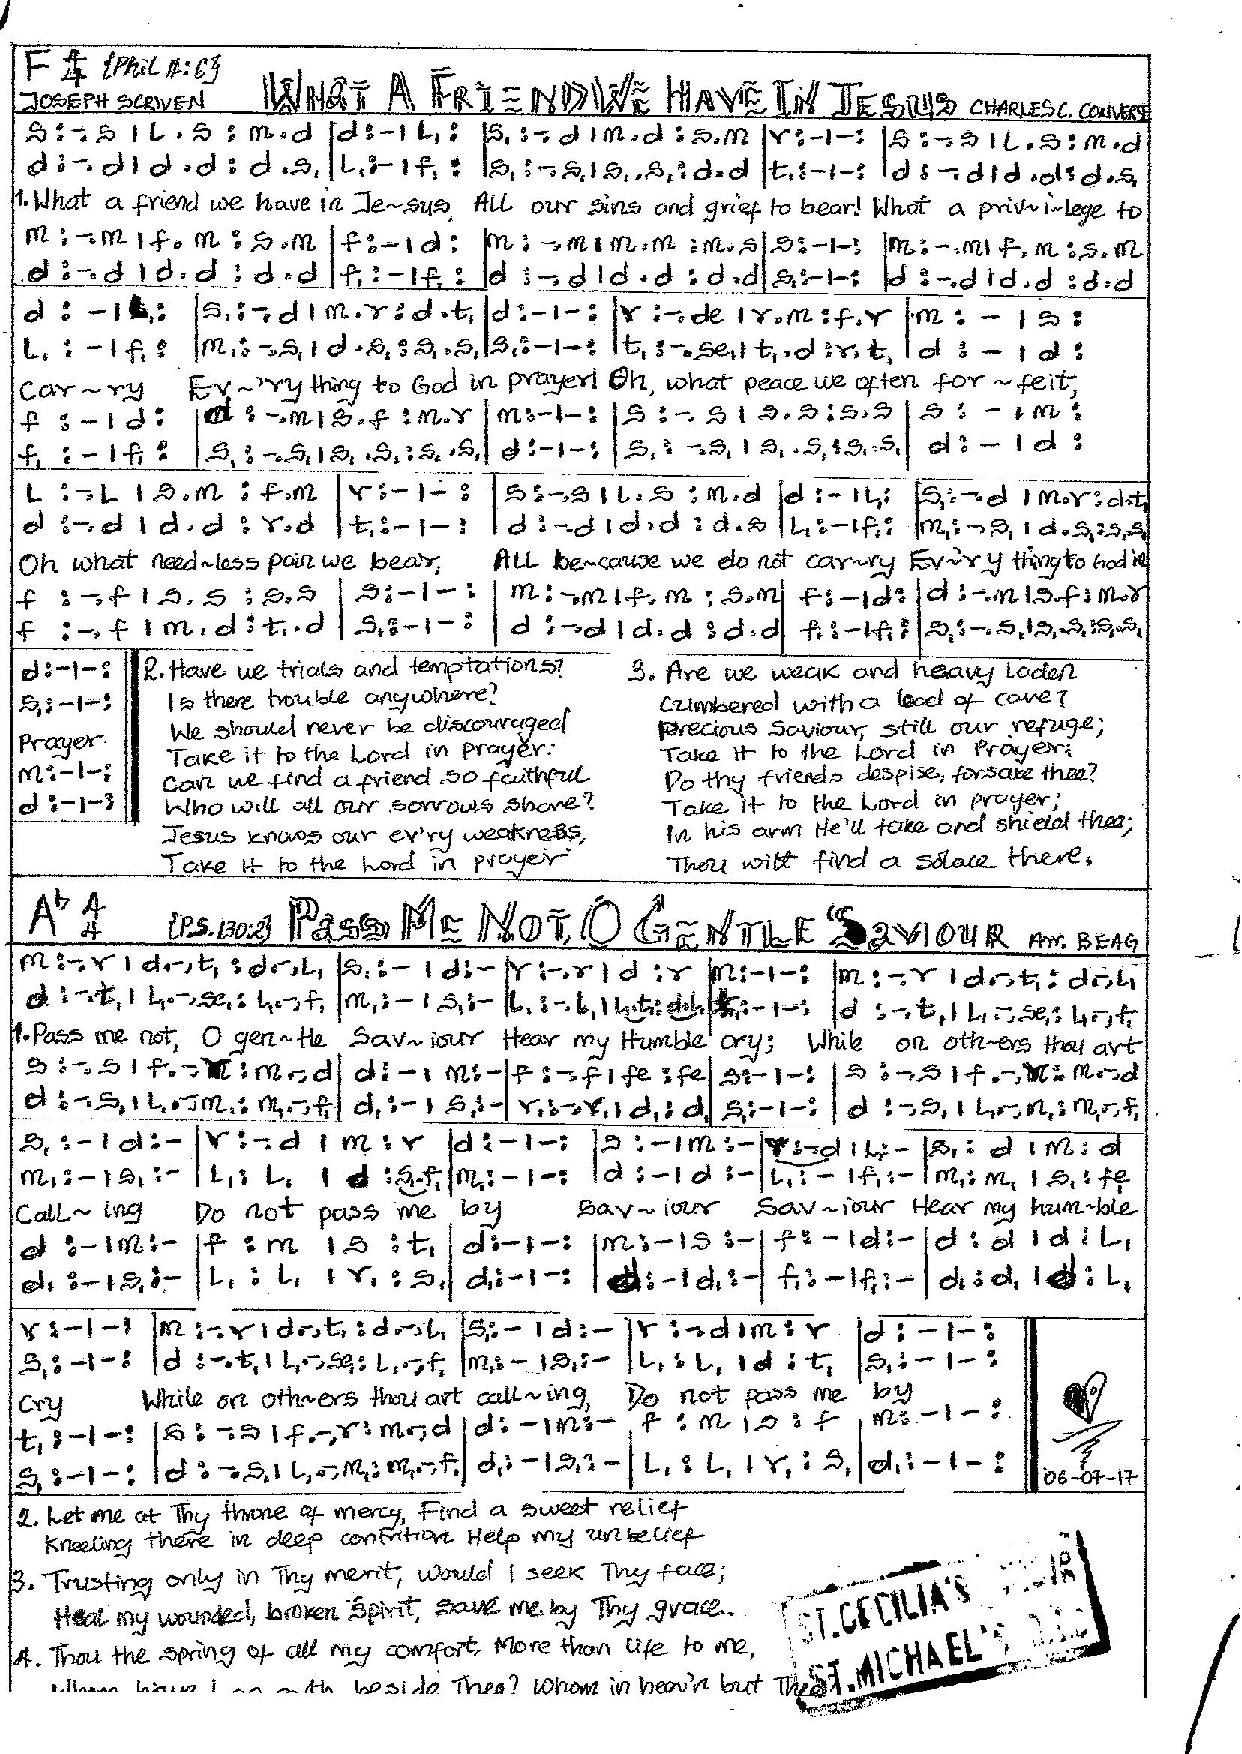 F 4/4 {Phil 4:6}
JOSEPH SCRIVEN WHAT A FRIEND WE HAVE IN JESUS CHARLES C. CONVERSE
s :-.s | l.s : m.d | d :- | l, : | s, :-.d | m.d : s.m | r :- | - : | s :-.s | l.s : m.d
d :-.d | d.d : d.s, | l, :- | f, : | s, :-.s, | s,.s, : d.d | t, :- | - : | d :-.d | d.d : d.s,
1. What a friend we have in Je~sus, All our sins and grief to bear! What a priv~i~lege to
m :-.m | f.m : s.m | f :- | d : | m :-.m | m.m : m.s | s :- | - : | m :-.m | f.m : s.m
d :-.d | d.d : d.d | f, :- | f, : | d :-.d | d.d : d.d | s, :- | - : | d :-.d | d.d : d.d
d : - | l, : | s, :-.d | m.r : d.t, | d :- | - : | r :-.de | r.m : f.r | m : - | s :
l, : - | f, : | m, :-.s, | d.s, : s,.s, | s, :- | - : | t, :-.se, | t,.d : r.t, | d : - | d :
Car~ry Ev~'ry thing to God in prayer! Oh, what peace we often for~feit,
f : - | d : | d :-.m | s.f : m.r | m :- | - : | s :-.s | s.s : s.s | s : - | m :
f, : - | f, : | s, :-.s, | s,.s, : s,.s, | d :- | - : | s, :-.s, | s,.s, : s,.s, | d : - | d :
l :-.l | s.m : f.m | r :- | - : | s :-.s | l.s : m.d | d :- | l, : | s, :-.d | m.r : d.t,
d :-.d | d.d : r.d | t, :- | - : | d :-.d | d.d : d.s | l, :- | f, : | m, :-.s, | d.s, : s,.s,
Oh what need~less pain we bear, All be~cause we do not car~ry Ev~'ry thing to God in
f :-.f | s.s : s.s | s :- | - : | m :-.m | f.m : s.m | f :- | d : | d :-.m | s.f : m.r
f :-.f | m.d : t,.d | s, :- | - : | d :-.d | d.d : d.d | f, :- | f, : | s, :-.s, | s,.s, : s,.s,
d :- | - :
s, :- | - :
Prayer.
m :- | - :
d :- | - :
2. Have we trials and temptations?
Is there trouble anywhere?
We should never be discouraged
Take it to the Lord in prayer:
Can we find a friend so faithful
Who will all our sorrows share?
Jesus knows our ev'ry weakness,
Take it to the Lord in prayer
3. Are we weak and heavy laden
Cumbered with a load of care?
Precious Saviour, still our refuge;
Take it to the Lord in Prayer:
Do thy friends despise, forsake thee?
Take it to the Lord in prayer;
In his arm He'll take and shield thee;
Thou wilt find a solace there.
A♭ 4/4 {PS. 130:2} PASS ME NOT, O GENTLE SAVIOUR Arr. BEAG
m :-.r | d.-,t, : d.-,l, | s, :- | d :- | r :-.r | d : r | m :- | - : | m :-.r | d.-,t, : d.-,l,
d :-.t, | l,.-,se, : l,.-,f, | m, :- | s, :- | l, :-.l, | l,.t, : d.l, | t, :- | - : | d :-.t, | l,.-,se, : l,.-,f,
1. Pass me not, O gen~tle Sav~iour Hear my Humble cry; While on oth~ers thou art
s :-.s | f.-,r : m.-,d | d :- | m :- | f :-.f | fe : fe | s :- | - : | s :-.s | f.-,r : m.-,d
d :-.s, | l,.-,m, : m,.-,f, | d, :- | s, :- | r, :-.r, | d, : d, | s, :- | - : | d :-.s, | l,.-,m, : m,.-,f,
s, :- | d :- | r :-.d | m : r | d :- | - : | s :- | m :- | r :-.d | l, :- | s, : d | m : d
m, :- | s, :- | l, : l, | d : s,.f, | m, :- | - : | d :- | d :- | l, :- | f, :- | m, : m, | s, : fe,
Call~ing Do not pass me by Sav~iour Sav~iour Hear my hum~ble
d :- | m :- | f : m | s : t, | d :- | - : | m :- | s :- | f :- | d :- | d : d | d : l,
d, :- | s, :- | l, : l, | r, : s, | d, :- | - : | d :- | d, :- | f, :- | f, :- | d, : d, | d : l,
r :- | - : | m :-.r | d.-,t, : d.-,l, | s, :- | d :- | r :-.d | m : r | d :- | - :
s, :- | - : | d :-.t, | l,.-,se, : l,.-,f, | m, :- | s, :- | l, : l, | d : t, | s, :- | - :
Cry While on oth~ers thou art call~ing, Do not pass me by
t, :- | - : | s :-.s | f.-,r : m.-,d | d :- | m :- | f : m | s : f | m :- | - :
s, :- | - : | d :-.s, | l,.-,m, : m,.-,f, | d, :- | s, :- | l, : l, | r, : s, | d, :- | - :
06-07-17
2. Let me at Thy throne of mercy, Find a sweet relief
Kneeling there in deep contrition Help my unbelief
3. Trusting only in Thy merit, Would I seek Thy face;
Heal my wounded, broken Spirit, save me by Thy grace.
4. Thou the spring of all my comfort, More than life to me,
Whom have I on earth beside Thee? Whom in heav'n but Thee
ST. CECILIA'S
ST. MICHAEL'S